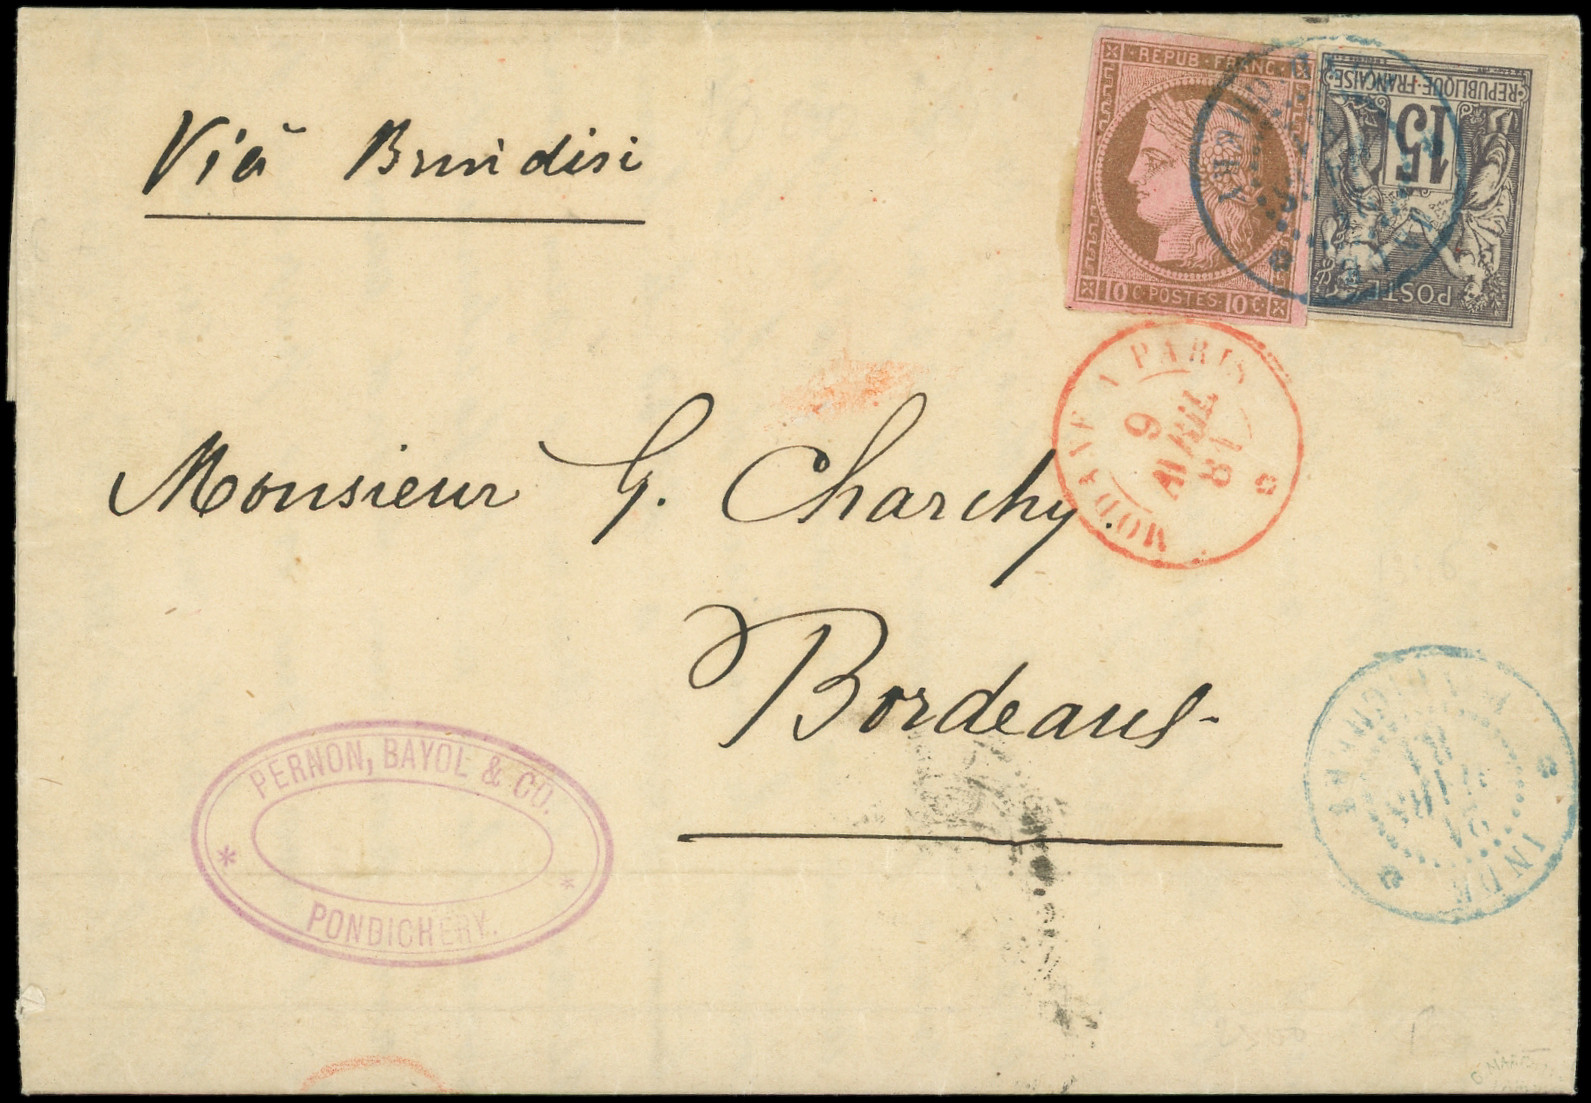 Viâ Brindisi
REPUB·FRANC·
10 C·POSTES·10 C·
REPUBLIQUE·FRANÇAISE
15
POSTE
MODANE A PARIS
9
AVRIL
81
Monsieur G. Charchy.
Bordeaux
PERNON, BAYOL & CO.
PONDICHERY.
PONDICHERY
81
INDE